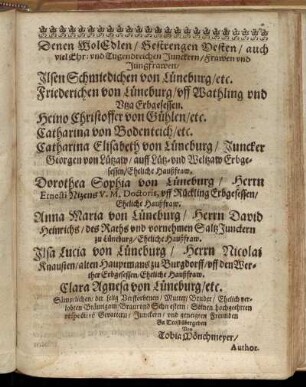 Denen WolEdlen / Gestrengen Vesten / auch
viel Ehr- und Tugendreichen Junckern / Frawen und
Jungfrawen /
Ilsen Schmiedichen von Lüneburg / etc.
Friederichen von Lüneburg / uff Wathling und
Utza Erbgesessen.
Heino Christoffer von Gühlen / etc.
Catharina von Bodenteich / etc.
Catharina Elisabeth von Lüneburg / Juncker
Georgen von Lützaw / auff Lütz- und Weltzaw Erbge-
sessen / Eheliche Haußfraw.
Dorothea Sophia von Lüneburg / Herrn
Ernesti Nizens V. M. Doctoris, uff Rückling Erbgesessen /
Eheliche Haußfraw.
Anna Maria von Lüneburg / Herrn David
Heinrichs / des Raths und vornehmen Saltz Junckern
zu Lüneburg / Eheliche Haußfraw.
Ilsa Lucia von Lüneburg / Herrn Nicolai
Knausten / alten Hauptmans zu Burgdorff / uff den Wer-
ther Erbgesessen / Eheliche Haußfraw.
Clara Agnesa von Lüneburg / etc.
Sämptlichen / der selig Verstorbenen / Mutter / Bruder / Ehelich ver-
lobten Bräutgam / Braut und Schwestern /
Gevattern / Junckern / und geneigten Freunden
Zu Trost übergeben
Von
Tobia Mönchmeyer /
Author.